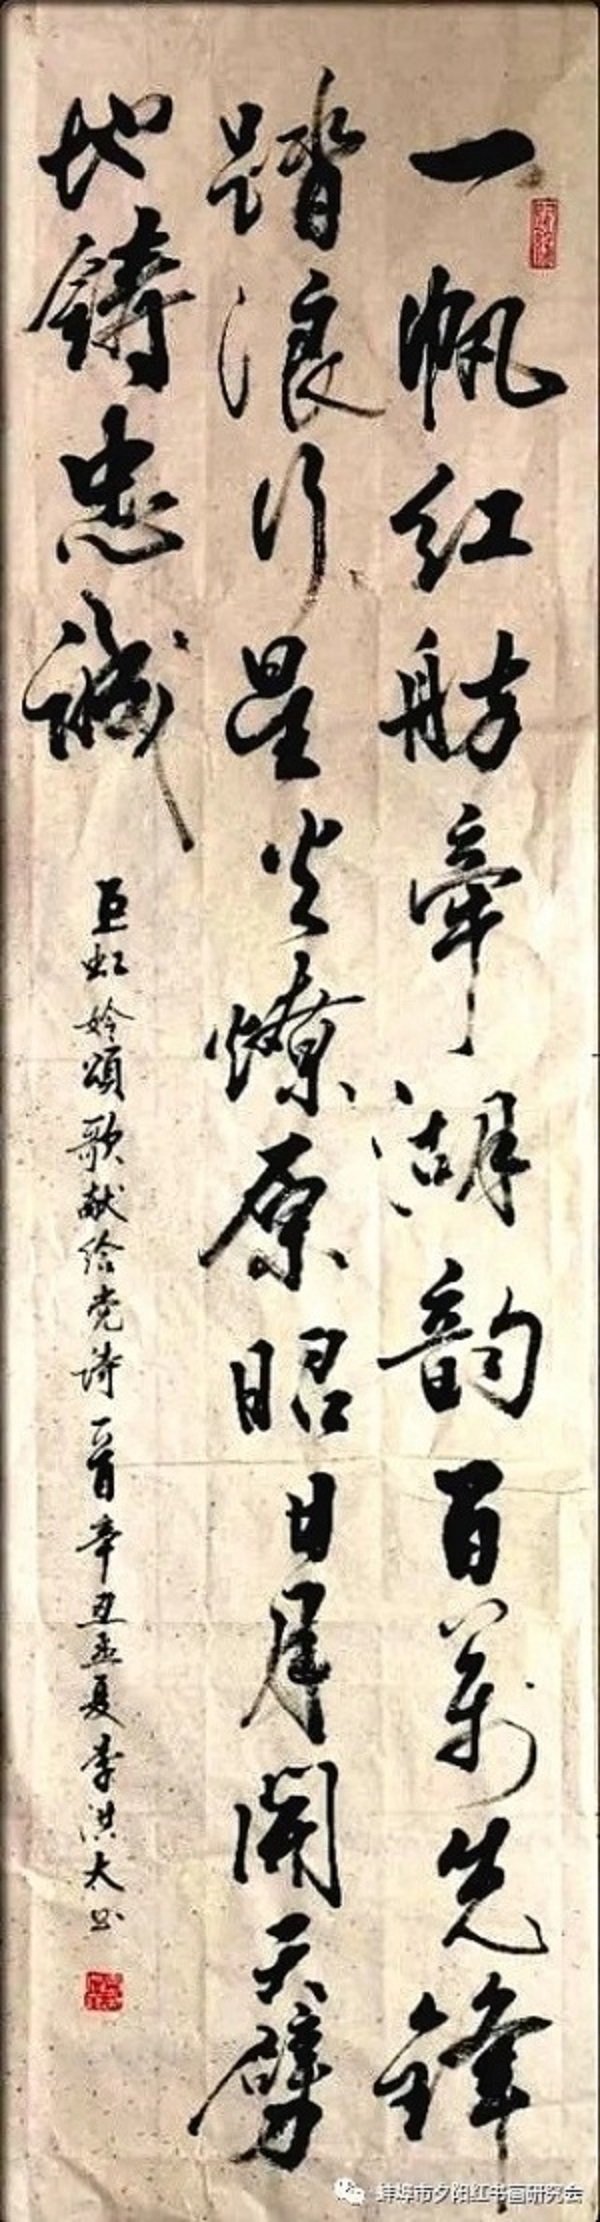 一帆红舫牵湖韵百萬先鋒
踏浪行星火燎原昭日月開天劈
地鑄忠誠
虹姈頌歌献给党诗一首辛丑孟夏李洪太书
蚌埠市夕阳红书画研究会